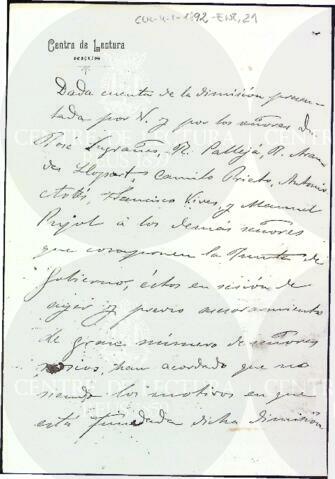 CLR-4-1-1892-EWR,21
Centro de Lectura
REUS
Dada cuenta de la dimisión presen-
tada por V. y por los señores D.
José Lugrañes, R. Pallejá, R.
Llopart, Camilo Prieto, Antonio
Francisco Vives, y Manuel
Pujol á los demás señores
que componen la Junta de
Gobierno, éstos en sesión de
ayer y previo asesoramiento
de gran número de señores
socios, han acordado que no
siendo los motivos en que
está fundada dicha dimisión